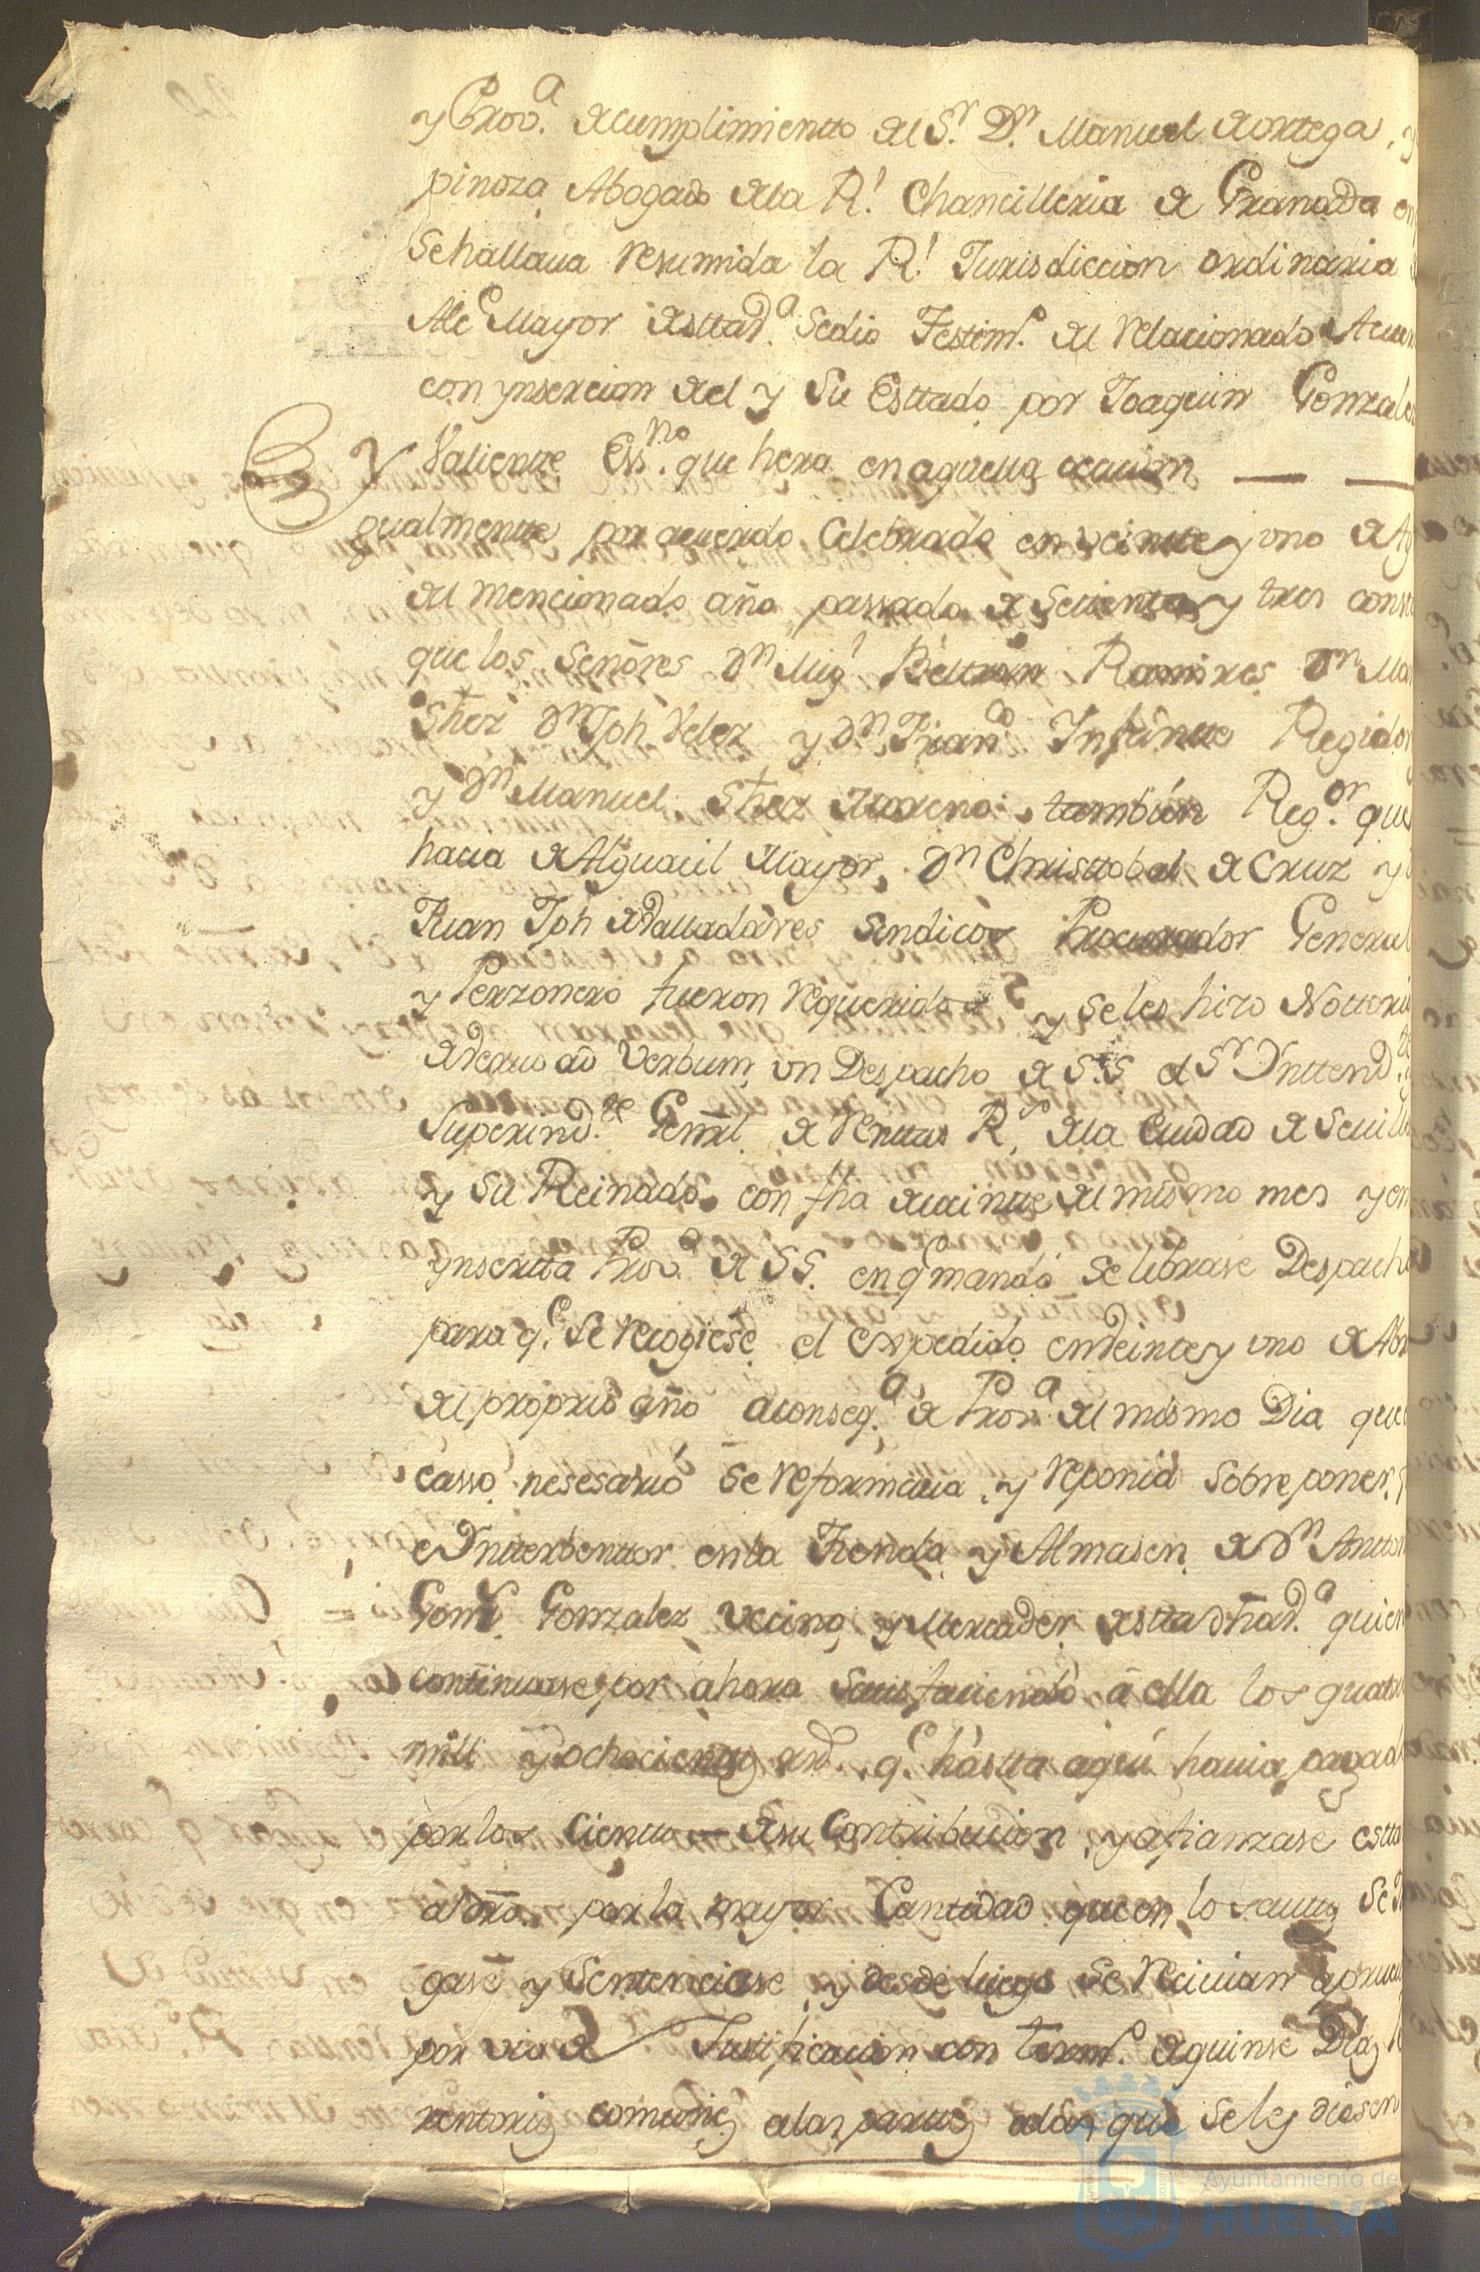 y Prov.ª de cumplimiento del S.r D.n Manuel de ortega, y
pinoza Abogado de la R.l Chancilleria de Granada en
Se hallaua resumida la R.l Jurisdiccion ordinaria
Alc.e Mayor de estta V.ª Se dio Testim.o del relacionado Acuer
con ynsercion de el y Su Esttado por Joaquin Gonzales
Valiente Ess.no que hera en aquella ocacion
Y gualmente por acuerdo Celebrado en veinte y uno de Ag
del mencionado año passado de Setenta y tres const
que los Señores Dn Migl Beltran Ramires Dn Man
Shez Dn Jph Velez y Dn Fran.co Infantte Regidor
y Dn Manuel Shez Moreno tambien Reg.or que
hacia de Alguacil Mayor, Dn Christtobal de Cruz y
Juan Jph de Valladares Sindicos Procurador General
y Perzonero fueron requeridos y se les hizo Nottori
de Verbo ad Verbum un Despacho de S.S el Sr Yntend.te
Superind.te Genrl de Renttas R.s de la Ciudad de Seuilla
y Su Reinado con fha de veinte del mismo mes y en
ynsertta Prov.ª de SS. en q mandó Se librase Despacho
para q.e Se recogiese el expedido en Veinte y uno de Abr
del proprio año a conseq.ª de Prov.ª del mismo Dia que
casso nesesario Se reformaua, y reponia Sobre poner
e Ynterbenttor en la Tienda y Almasen de Dn Anttoni
Gomz Gonzalez vecino y Mercader de estta dha V.ª quien
continuase por ahora Sattisfaciendo a ella los quatro
mill y ochocientos rd.s q.e hastta aquí hauia pagado
por los Cientos de su Contribucion y afianzase estta
a dro por la mayor Cantidad que en los autos Se
gase y Sentenciase y desde luego Se reciuian aprueu
por via de Justificacion con term.o de quinse Dias
rentorios comunes a las partes a las que Se les diesen
Ayuntamiento de
HUELVA